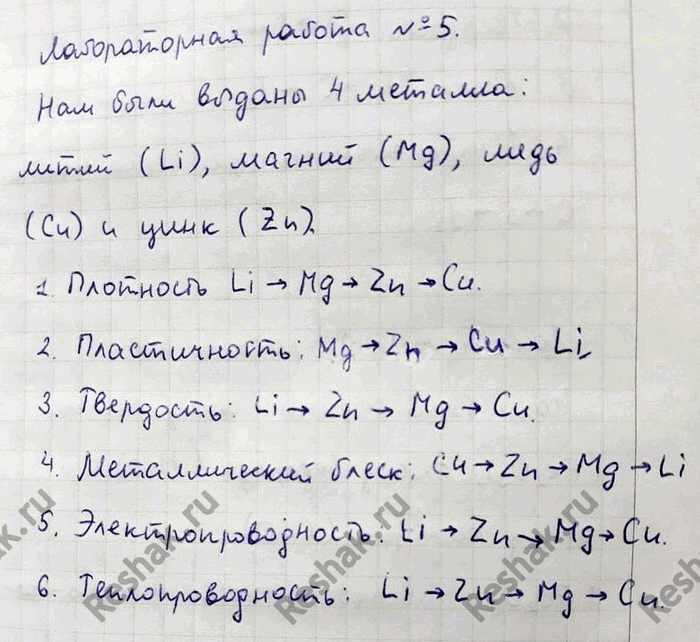 Лабораторная работа №5.
Нам были выданы 4 металла:
литий (Li), магний (Mg), медь
(Cu) и цинк (Zn).
1. Плотность Li → Mg → Zn → Cu.
2. Пластичность: Mg → Zn → Cu → Li
3. Твердость: Li → Zn → Mg → Cu.
4. Металлический блеск: Cu → Zn → Mg → Li
5. Электропроводность: Li → Zn → Mg → Cu.
6. Теплопроводность: Li → Zn → Mg → Cu.
Reshak.ru
Reshak.ru
Reshak.ru